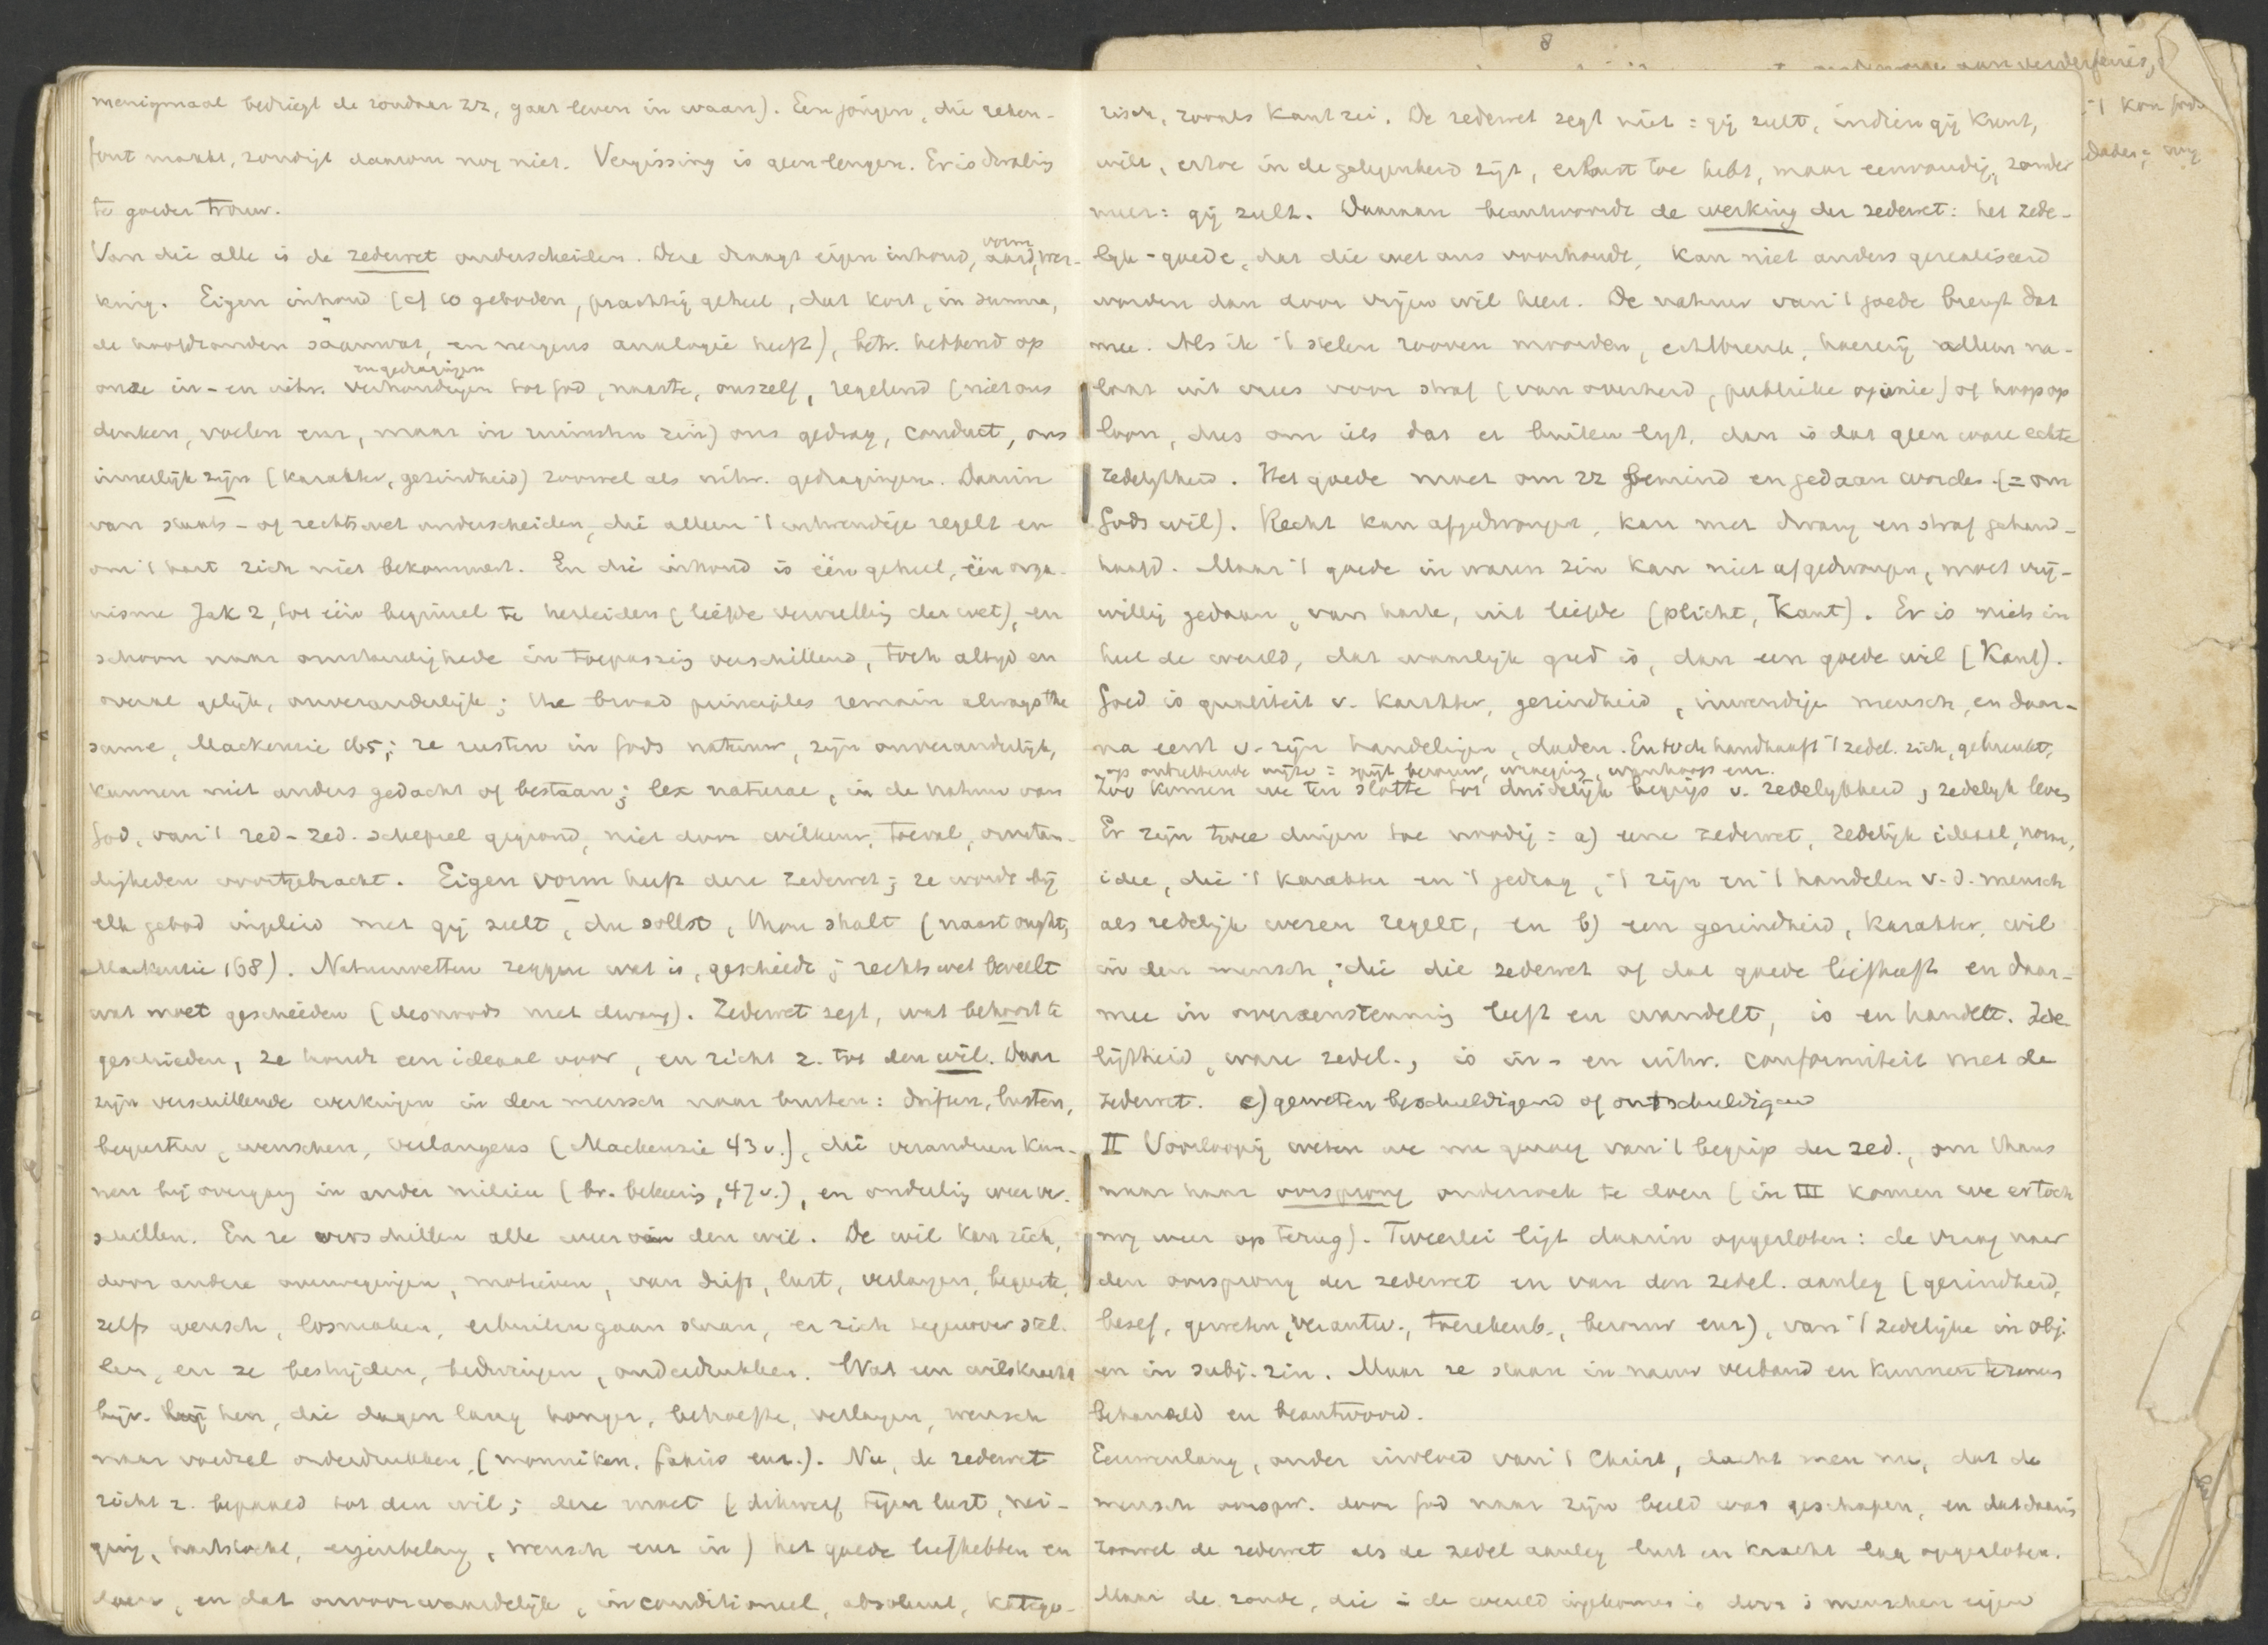 menigmaal bedriegt de zondaar zz, gaat leven in waan). Een jongen, die reken-
fout maakt, zondigt daarom nog niet. Vergissing is geen leugen. Er is dwaling
te goeder trouw.
Van die alle is de zedewet onderscheiden. Deze draagt eigen inhoud, vorm aard, wer-
king. Eigen inhoud (cf 10 geboden, prachtig geheel, dat kort, in summa,
de hoofdzonden saamvat, en nergens analogie heeft), betr. hebbend op
onze in- en uitw. verhoudingen en gedragingen tot God, naaste, onszelf, regelend (niet ons
denken, voelen enz, maar in ruimsten zin) ons gedrag, conduct, ons
innerlijk zijn (karakter, gezindheid) zoowel als uitw. gedragingen. Daarin
van staats- of rechtswet onderscheiden, die alleen 't uitwendige regelt en
om 't hart zich niet bekommert. En die inhoud is één geheel, één orga-
nisme Jak 2, tot één beginsel te herleiden (liefde vervulling der wet), en
schoon naar omstandigheden in toepassing verschillend, toch altijd en
overal gelijk, onveranderlijk; the broad principles remain always the
same, Mackenzie 165; ze rusten in Gods natuur, zijn onveranderlijk,
kunnen niet anders gedacht of bestaan; lex naturae, in de natuur van
God, van 't red-zed. schepsel gegrond, niet door willekeur, toeval, omstan-
digheden voortgebracht. Eigen vorm heeft deze zedewet; ze wordt bij
elk gebod ingeleid met gij zult, du sollst, thou shalt (naast ought,
Mackenzie 168). Natuurwetten zeggen wat is, geschiedt; rechtswet beveelt
wat moet geschieden (desnoods met dwang). Zedewet zegt, wat behoort te
geschieden, ze houdt een ideaal voor, en richt z. tot den wil. Daar
zijn verschillende werkingen in den mensch naar buiten: driften, lusten,
begeerten, wenschen, verlangens (Mackenzie 43 v.), die veranderen kun-
nen bij overgang in ander milieu (bv. bekeering, 47 v.), en onderling weer ver-
schillen. En ze verschillen alle weer van den wil. De wil kan zich,
door andere overwegingen, motieven, van drift, lust, verlangen, begeerte,
zelfs wensch, losmaken, erbuiten gaan staan, er zich tegenover stel-
len, en ze bestrijden, bedwingen, onderdrukken. Wat een wilskracht
bijv. bij hen, die dagen lang honger, behoefte, verlangen, wensch
naar voedsel onderdrukken (monniken, fakirs enz.). Nu, de zedewet
richt z. bepaald tot den wil; deze moet (dikwerf tegen lust, nei-
ging, hartstocht, eigenbelang, wensch enz in) het goede liefhebben en
doen, en dat onvoorwaardelijk, inconditioneel, absoluut, katego-
risch, zooals Kant zei. De zedewet zegt niet: gij zult, indien gij kunt,
wilt, ertoe in de gelegenheid zijt, er lust toe hebt, maar eenvoudig, zonder
meer: gij zult. Daaraan beantwoordt de werking der zedewet: het zede-
lijk-goede, dat die wet ons voorhoudt, kan niet anders gerealiseerd
worden dan door vrijen wil heen. De natuur van 't goede brengt dat
mee. Als ik 't stelen rooven moorden, echtbreuk, hoererij alleen na-
laat uit vrees voor straf (van overheid, publieke opinie) of hoop op
loon, dus om iets dat er buiten ligt, dan is dat geen ware echte
zedelijkheid. Het goede moet om zz bemind en gedaan worden (= om
Gods wil). Recht kan afgedwongen, kan met dwang en straf gehand-
haafd. Maar 't goede in waren zin kan niet afgedwongen, moet vrij-
willig gedaan, van harte, uit liefde (plicht, Kant). Er is niets in
heel de wereld, dat waarlijk goed is, dan een goede wil (Kant).
Goed is qualiteit v. karakter, gezindheid, inwendige mensch, en daar-
na eerst v. zijn handelingen, daden. En toch handhaaft 't zedel. zich, gebreukt,
op ontzettende wijze: spijt berouw, wroeging, wanhoop enz.
Zoo komen we ten slotte tot duidelijk begrip v. zedelijkheid, zedelijk leven
Er zijn twee dingen toe noodig: a) eene zedewet, zedelijk ideaal, norm,
idee, die 't karakter en 't gedrag, 't zijn en 't handelen v. d. mensch
als redelijk wezen regelt, en b) een gezindheid, karakter, wil
in den mensch, die die zedewet of dat goede liefheeft en daar-
mee in overeenstemming leeft en wandelt, is en handelt. Zede-
lijkheid, ware zedel., is in- en uitw. conformiteit met de
zedewet. c) geweten beschuldigend of ontschuldigend
II Voorloopig weten we nu genoeg van 't begrip der zed., om thans
naar haar oorsprong onderzoek te doen (in III komen we er toch
nog weer op terug). Tweeërlei ligt daarin opgesloten: de vraag naar
den oorsprong der zedewet en van den zedel. aanleg (gezindheid,
besef, geweten, verantw., toerekenb., berouw enz), van 't zedelijke in obj.
en in subj. zin. Maar ze staan in nauw verband en kunnen tezamen
behandeld en beantwoord.
Eeuwenlang, onder invloed van 't Christ, dacht men nu, dat de
mensch oorspr. door God naar zijn beeld was geschapen, en dat daarin
zoowel de zedewet als de zedel aanleg lust en kracht lag opgesloten.
Maar de zonde, die in de wereld ingekomen is door 's menschen eigen
8